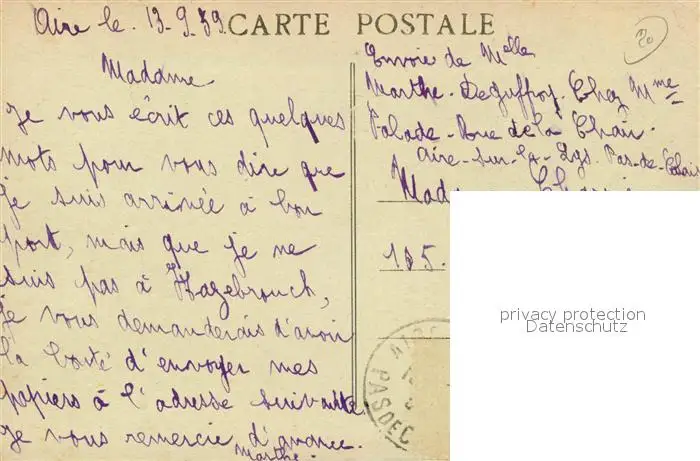 Aire le. 13-9-39.
CARTE POSTALE
20
Madame
Je vous écrit ces quelques
mots pour vous dire que
je suis arrivée à bon
port, mais que je ne
suis pas à Hazebrouch,
Je vous demanderais d'avoir
la bonté d'envoyer mes
papiers à l'adresse suivante
Je vous remercie d'avance.
Marthe.
Envoie de Melle
Marthe Deguffroy. Chez Mme
Palade - Rue de la
Aire-sur-la-Lys. Pas-de-Calais
Mad
105.
AIRE
PAS DE C
privacy protection
Datenschutz